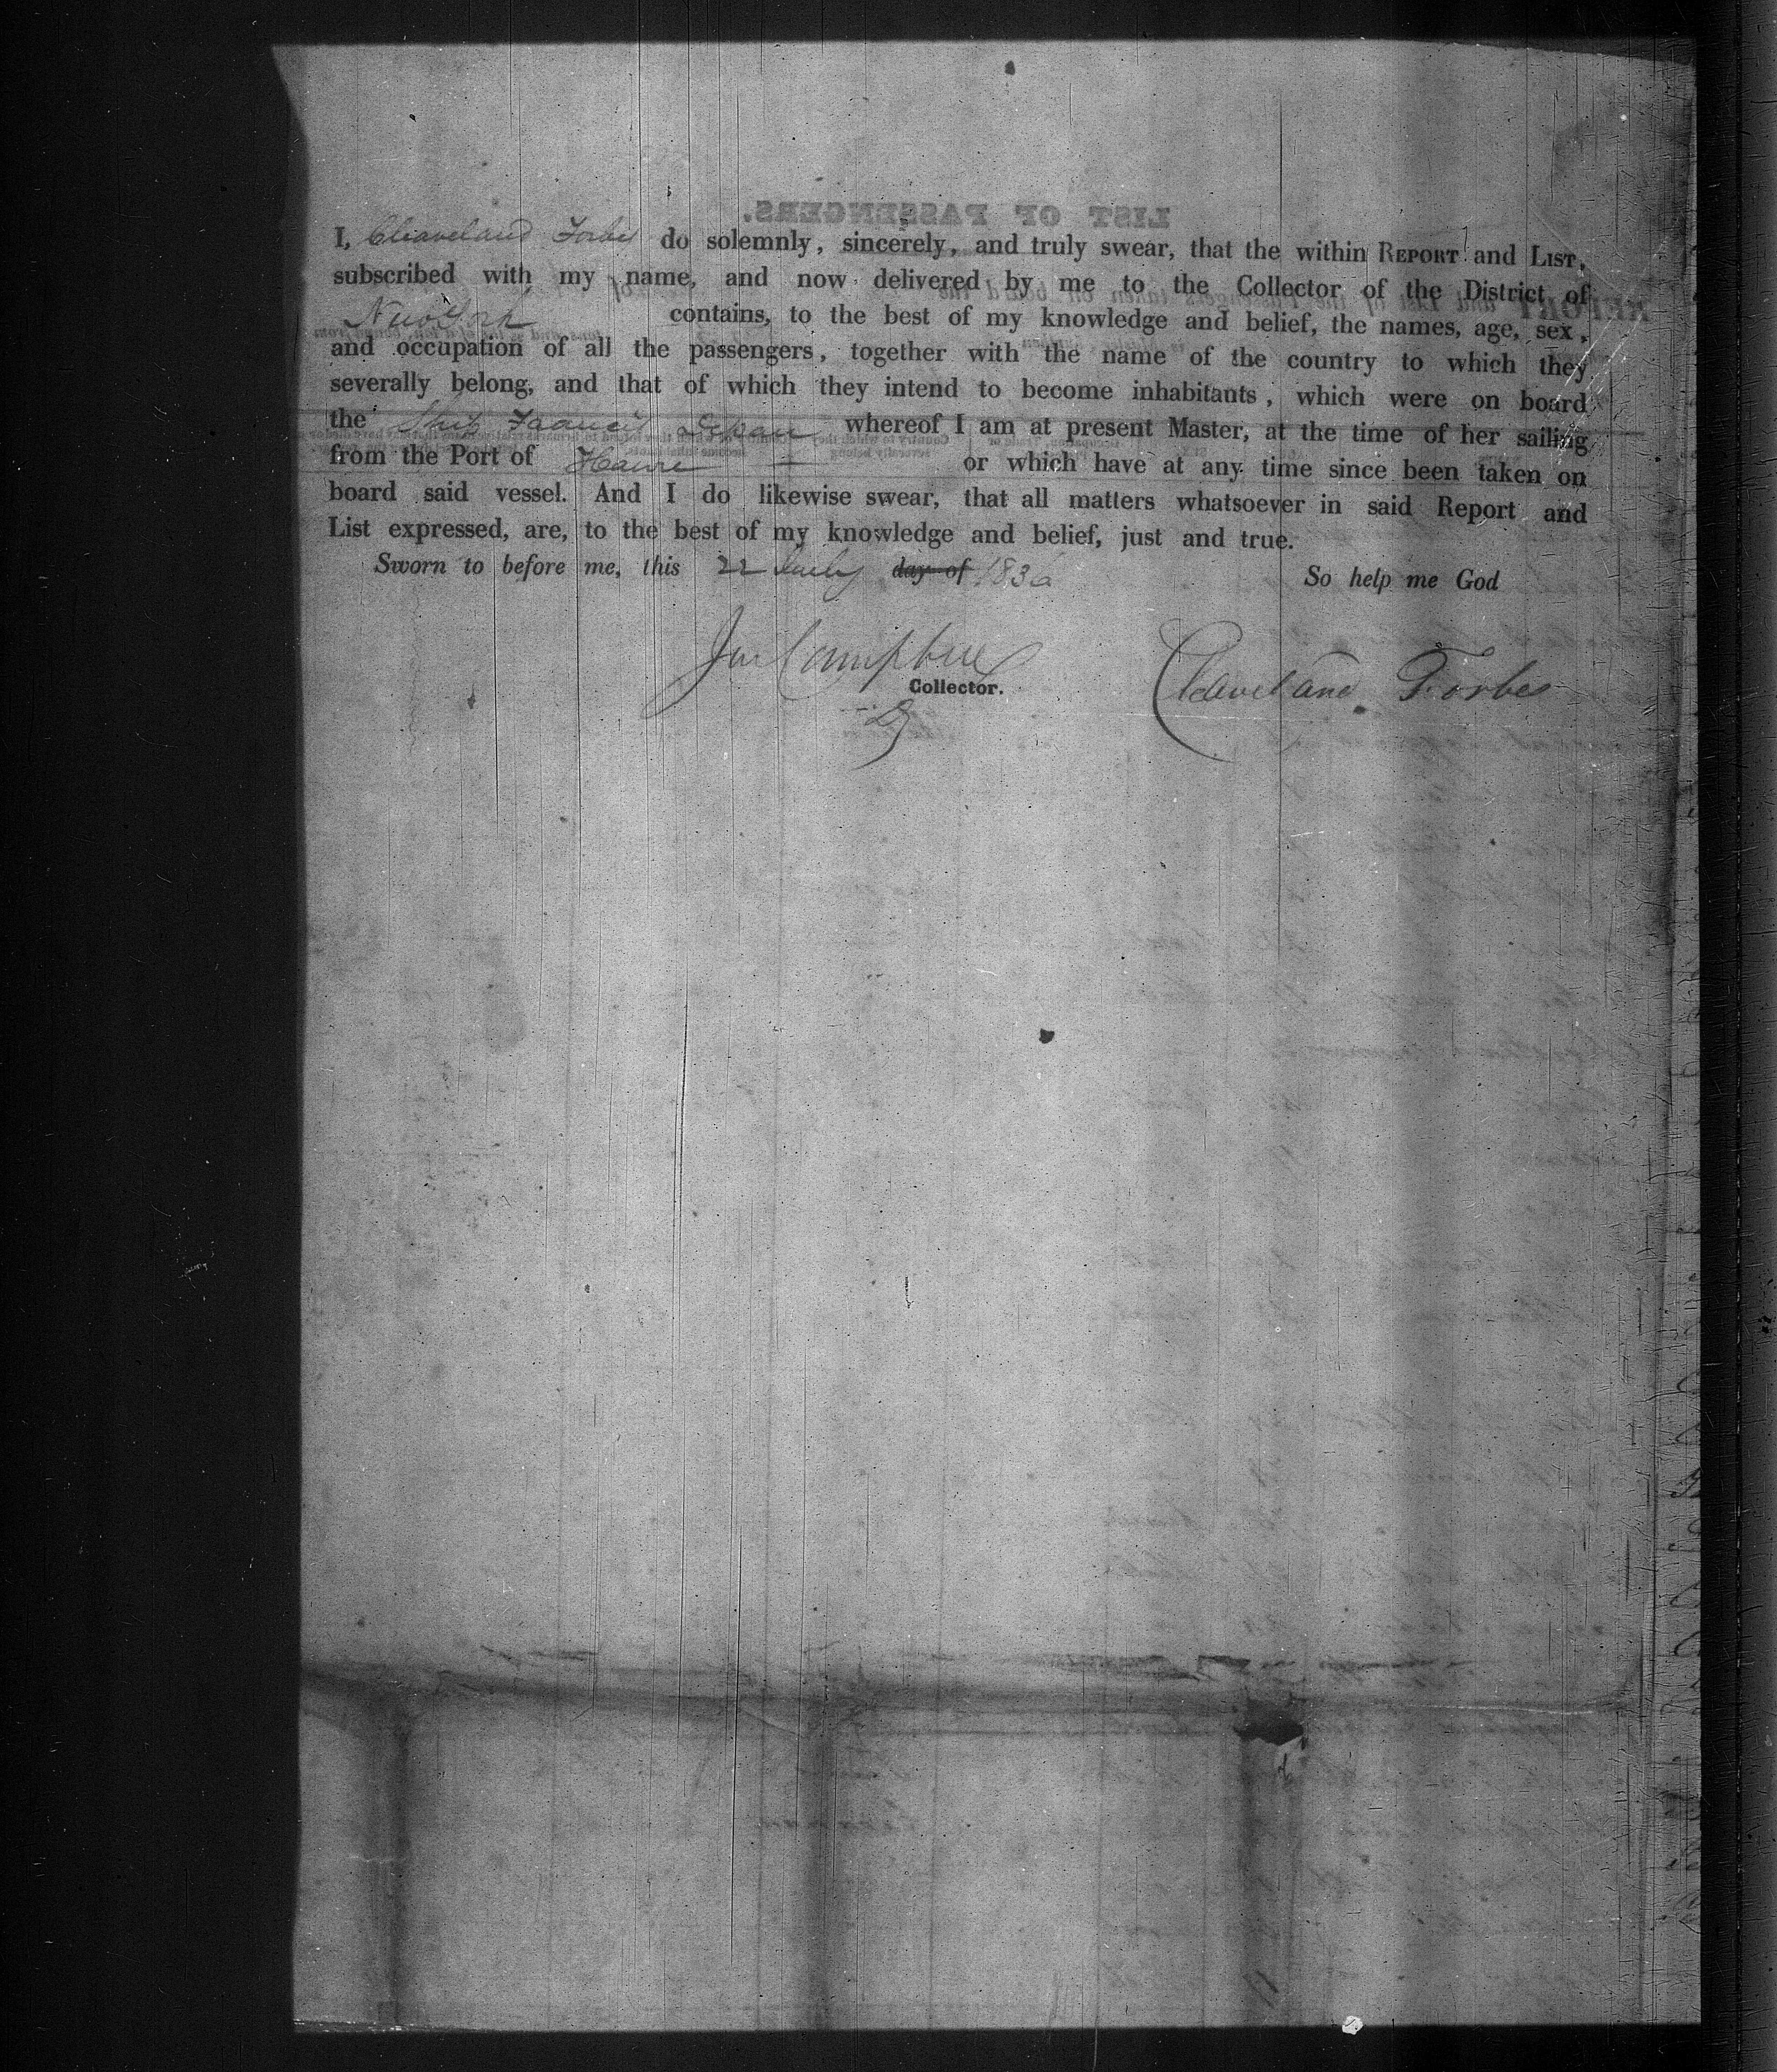 I, Cleaveland Forbes do solemnly, sincerely, and truly swear, that the within REPORT and LIST,
subscribed with my name, and now delivered by me to the Collector of the District of
New York contains, to the best of my knowledge and belief, the names, age, sex,
and occupation of all the passengers, together with the name of the country to which they
severally belong, and that of which they intend to become inhabitants, which were on board
the Ship Francis Depau whereof I am at present Master, at the time of her sailing
from the Port of Havre or which have at any time since been taken on
board said vessel. And I do likewise swear, that all matters whatsoever in said Report and
List expressed, are, to the best of my knowledge and belief, just and true.
Sworn to before me, this 22 July day of 1836 So help me God
Campbell
Collector. Cleaveland Forbes